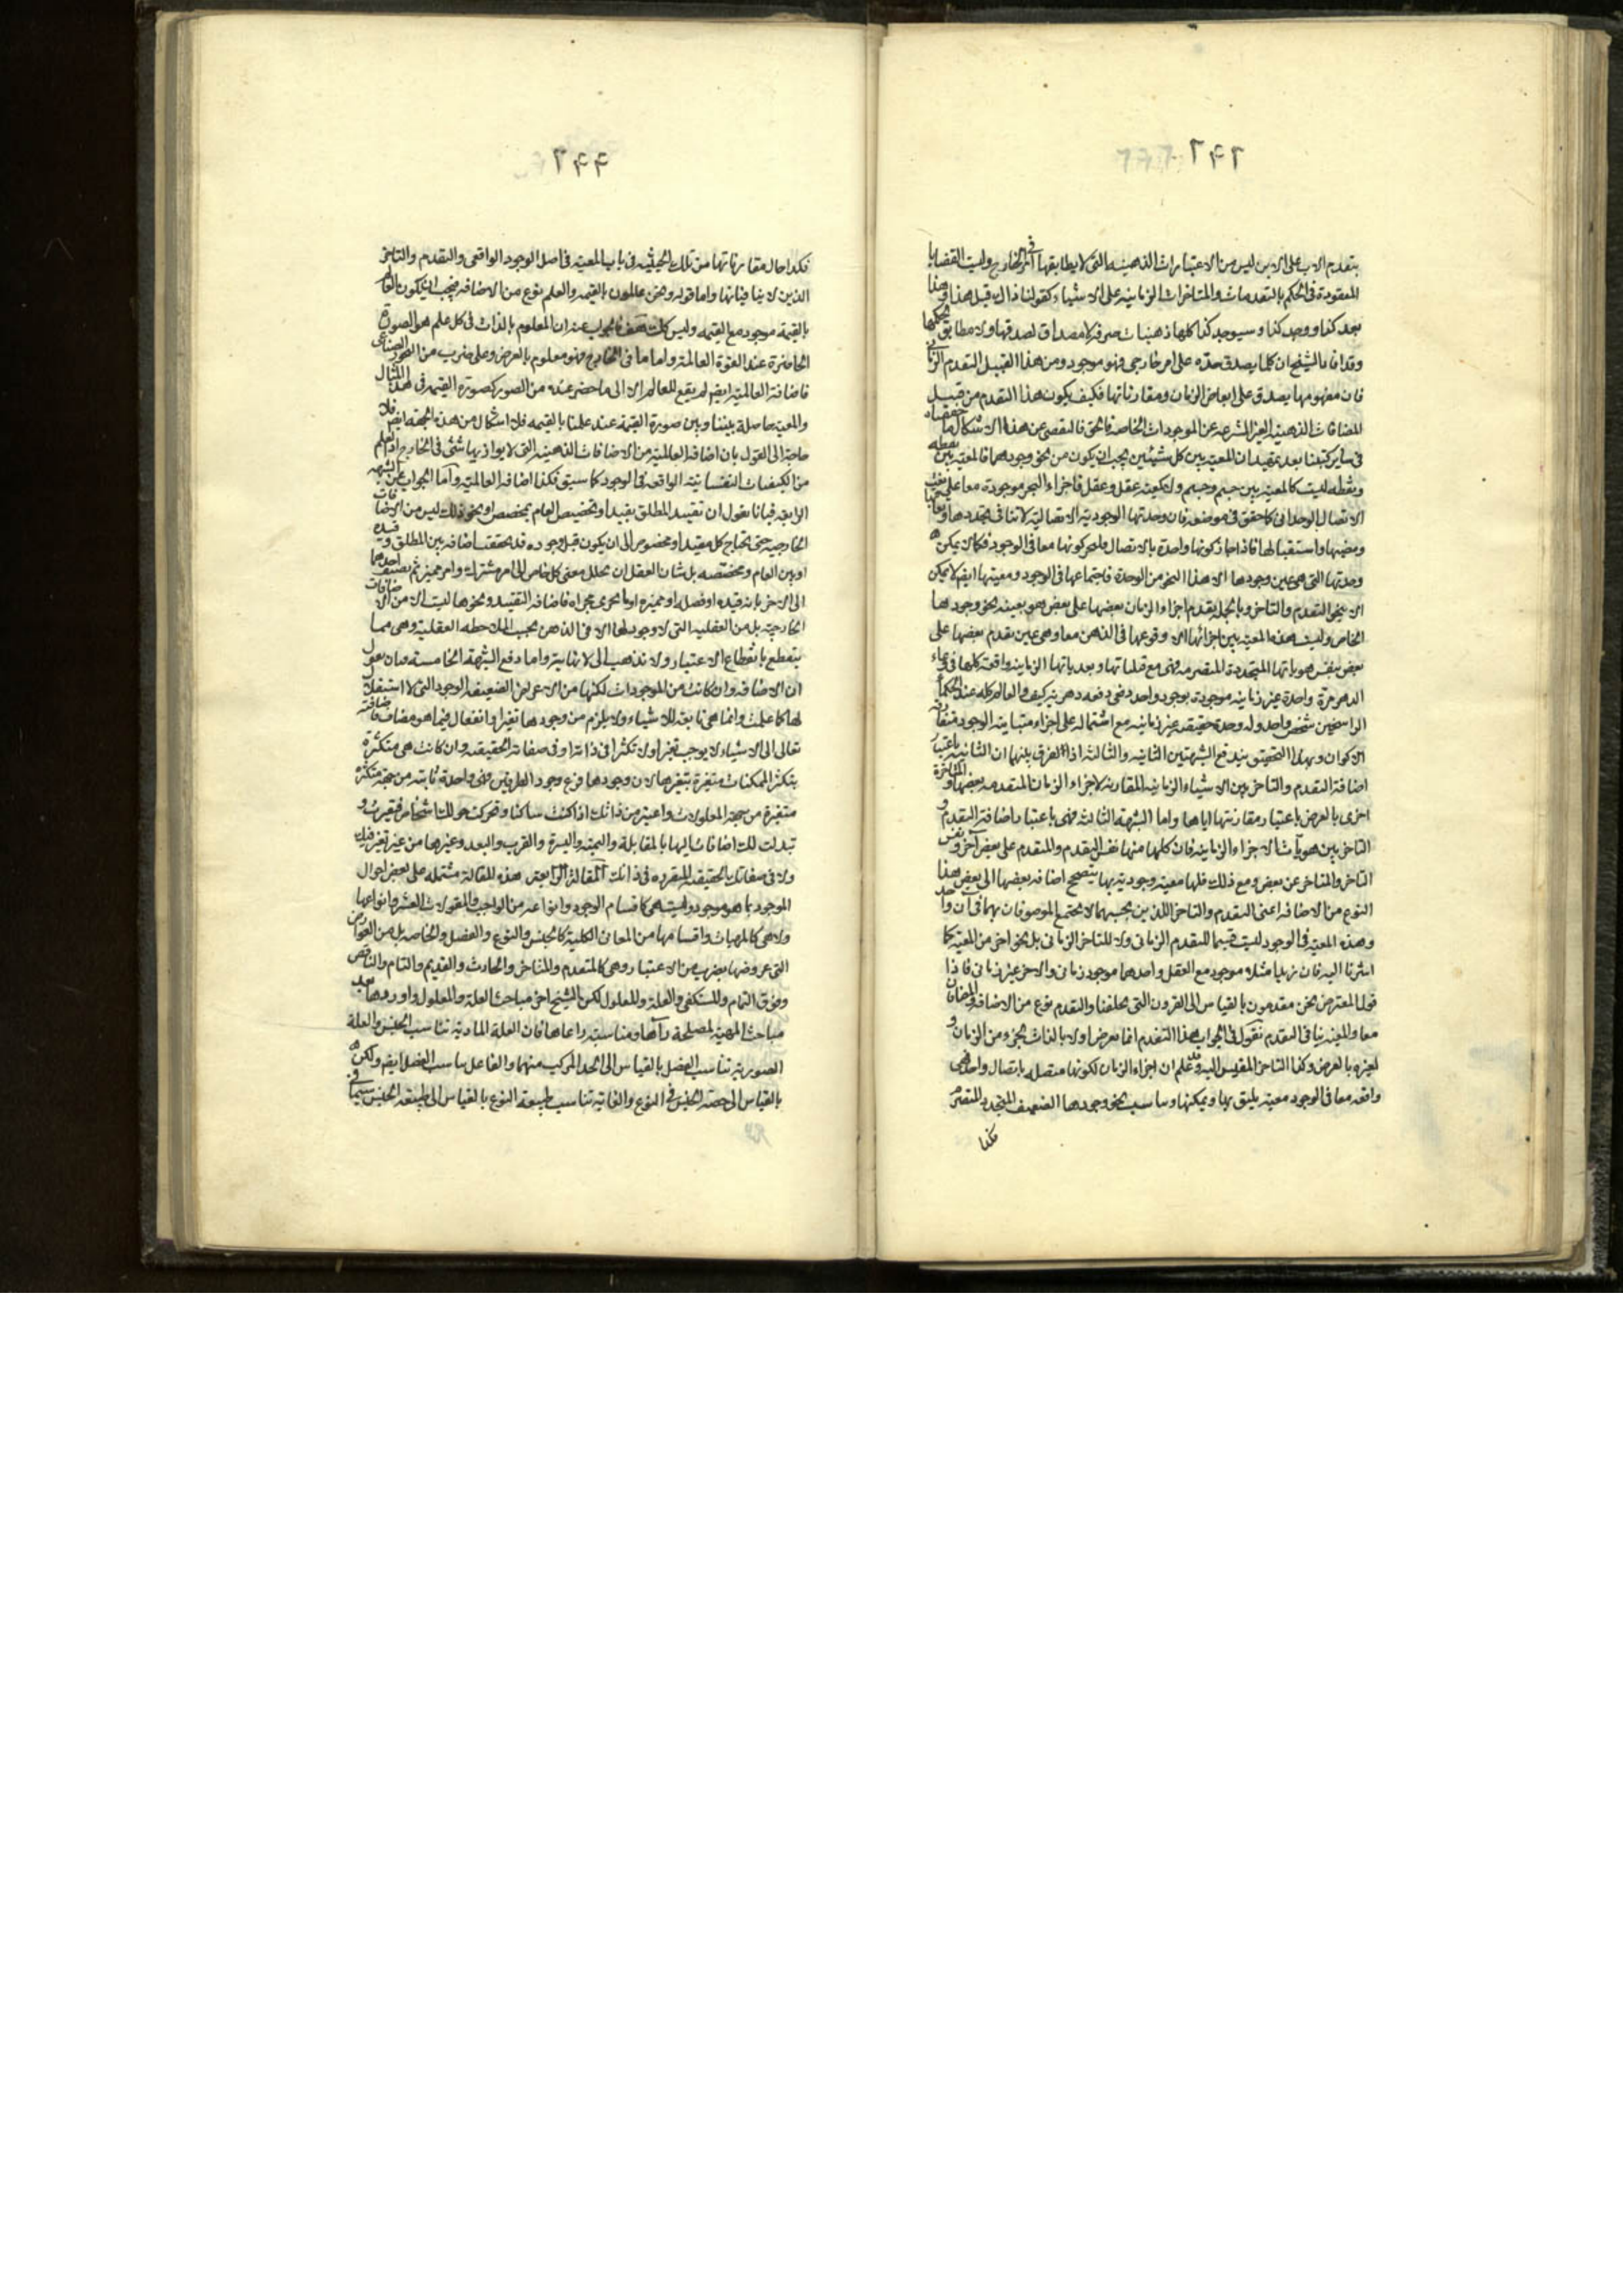 ٢٤٢
بتقدم الاب على الابن ليس من الاعتبارات الذهنية التى لا يطابقها امر فى الخارج وليست القضايا
المعقودة فى الحكم بالتقدمات والمتاخرات الزمانية على الاشياء كقولنا ذاك قبل هذا وهذا
بعد كذا ووجد كذا وسيوجد كذا كلها ذهنيات صرفة لا مصداق لصدقها ولا مطابق لحكمها
وقد افاد الشيخ ان كلما يصدق حده على امر خارجى فهو موجود ومن هذا القبيل التقدم الزمانى
فان مفهومها يصدق على ابعاض الزمان ومقارناتها فكيف يكون هذا التقدم من قبيل
المضافات الذهنية الغير المنتزعة عن الموجودات الخاصة فالحق فى التفصى عن هذا الاشكال ما حققناه
فى ساير كتبنا بعد تمهيد ان المعية بين كل شيئين يجب ان يكون من نحو وجودهما فالمعية بين نقطة
ونقطة ليست كالمعية بين جسم وجسم ولا كمعية عقل وعقل فاجزاء البحر موجودة معا على نعت
الاتصال الوحدانى كما حقق فى موضعه فان وحدتها الوجودية الاتصالية لا تنافى تجددها و
ومضيها واستقبالها فاذا جاز كونها واحدة بالاتصال فليجز كونها معا فى الوجود فكما لا يمكن
وحدتها التى هى عين وجودها الا هذا النحو من الوحدة فاجتماعها فى الوجود ومعيتها ايضا لا يمكن
الا بنحو التقدم والتاخر وبالجملة تقدم اجزاء الزمان بعضها على بعض هو بعينه نحو وجودها
الخاص وليست هذه المعية بين اجزائها الا وقوعها فى الذهن معا وهى عين تقدم بعضها على
بعض بنفس هوياتها المتجددة المتصرمة فهى مع قبلياتها وبعدياتها الزمانية واقعة كلها فى وعاء
الدهر مرة واحدة غير زمانية موجودة بوجود واحد دفعى دفعة دهرية كيف والعالم كله عند الحكماء
الراسخين شخص واحد وله وحدة حقيقية غير زمانية مع اشتماله على اجزاء متباينة الوجود متفارقة
الاكوان وبهذا التحقيق يندفع الشبهتين الثانية والثالثة اذ الفرق بينهما ان الثانية باعتبار
اضافة التقدم والتاخر بين الاشياء الزمانية المقارنة لاجزاء الزمان المتقدمة بعضها والمتاخرة
اخرى بالعرض باعتبار مقارنتها اياها واما الشبهة الثالثة فهى باعتبار اضافة التقدم و
التاخر بين هويات الاجزاء الزمانية فان كلها منها نفس التقدم والمتقدم على بعض آخر ونفس
التاخر والمتاخر عن بعض ومع ذلك فلها معية وجودية بها يتصحح اضافة بعضها الى بعض هذا
النوع من الاضافة اعنى التقدم والتاخر اللذين بحسبهما لا يجتمع الموصوفان بهما فى آن واحد
وهذه المعية فى الوجود ليست قسيما للتقدم الزمانى ولا للتاخر الزمانى بل نحو اخر من المعية كما
اشرنا اليه فان زيدا مثلا موجود مع العقل واحدهما موجود زمانى والاخر غير زمانى فاذا
قول المعترض نحن متقدمون بالقياس الى القرون التى تخلفنا والتقدم نوع من الاضافة والمضافان
معا والمعية ينافى التقدم نقول فى الجواب هذا التقدم انما يعرض اولا بالذات لجزء من الزمان و
لغيره بالعرض وكذا التاخر المقيس اليه وقد علم ان اجزاء الزمان لكونها متصلة باتصال واحد فهى
واقعة معا فى الوجود معية يليق بها ويمكنها ويناسب نحو وجودها الضعيف المتجدد المتصرم
فكذا
٢٤٣
فكذا حال مقارناتها من تلك الحيثية فى باب المعية فى اصل الوجود الواقعى والتقدم والتاخر
الذين لا ينافيانها واما قوله ونحن عالمون بالقيمة والعلم نوع من الاضافة فيجب ان يكون العالم
بالقيمة موجود مع القيمة وليس كك هف فالجواب عنه ان المعلوم بالذات فى كل علم هو الصورة
الحاضرة عند القوة العالمة واما ما فى الخارج فهو معلوم بالعرض وعلى ضرب من التجوز الصناعى
فاضافة العالمية ايضا لم يقع للعالم الا الى ما حضر عنده من الصور كصورة القيمة فى هذا المثال
والمعية حاصلة بيننا وبين صورة القيمة عند علمنا بالقيمة فلا اشكال من هذه الجهة ايضا فلا
حاجة الى القول بان اضافة العالمية من الاضافات الذهنية التى لا يوازيها شئ فى الخارج اذ العلم
من الكيفيات النفسانية الواقعة فى الوجود كما سبق فكذا اضافة العالمية وأما الجواب عن الشبهة
الرابعة فبانا نقول ان تقييد المطلق بقيد او تخصيص العام بمخصص او نحو ذلك ليس من الاضافات
الخارجية حتى يحتاج كل مقيد او مخصوص الى ان يكون قبل وجوده قد تحققت اضافة بين المطلق وقيده
او بين العام ومخصصه بل شان العقل ان يحلل معنى كل خاص الى امر مشترك وامر مميز ثم يضيف احدهما
الى الاخر بانه قيده او فصله او مميزه او ما يجرى مجراه فاضافة التقييد ونحوها ليست الا من الاضافات
الخارجية بل من العقلية التى لا وجود لها الا فى الذهن بحسب الملاحظة العقلية وهى مما
ينقطع بانقطاع الاعتبار ولا تذهب الى لا نهاية واما دفع الشبهة الخامسة فبان نقول
ان الاضافة وان كانت من الموجودات لكنها من الاعراض الضعيفة الوجود التى لا استقلال
لها كما علمت وانما هى تابعة للاشياء ولا يلزم من وجودها تغير او انفعال فيما هو مضاف فاضافته
تعالى الى الاشياء لا يوجب تغيرا ولا تكثرا فى ذاته او فى صفاته الحقيقية وان كانت هى متكثرة
بتكثر الممكنات متغيرة بتغيرها لان وجودها فرع وجود الطرفين فهى واحدة ثابتة من جهة متكثرة
متغيرة من جهة المعلولات واعتبر من ذاتك اذا كنت ساكنا وتحركت حولك اشخاص فتغيرت و
تبدلت لك اضافات اليها بالمقابلة واليمنة واليسرة والقرب والبعد وغيرها من غير تغير فيك
ولا فى صفاتك الحقيقية المتقررة فى ذاتك المقالة الرابعة هذه المقالة مشتملة على بعض احوال
الموجود بما هو موجود وليست هى كاقسام الوجود وانواعه من الواجب والمقولات العشر وانواعها
ولا هى كالمهيات واقسامها من المعانى الكلية كالجنس والنوع والفصل والخاصة بل من العوارض
التى عروضها بضرب من الاعتبار وهى كالمتقدم والمتاخر والحادث والقديم والتام والناقص
وفوق التمام والمستكفى والعلة والمعلول لكن الشيخ اخر مباحث العلة والمعلول واوردها بعد
مباحث المهية لمصلحة رآها ومناسبة راعاها فان العلة المادية تناسب الجنس والعلة
الصورية تناسب الفصل بالقياس الى الحد المركب منهما والفاعل يناسب الفصل ايضا ولكن
بالقياس الى حصة الجنس فى النوع والغاية تناسب طبيعة النوع بالقياس الى طبيعة الجنس سيما فى